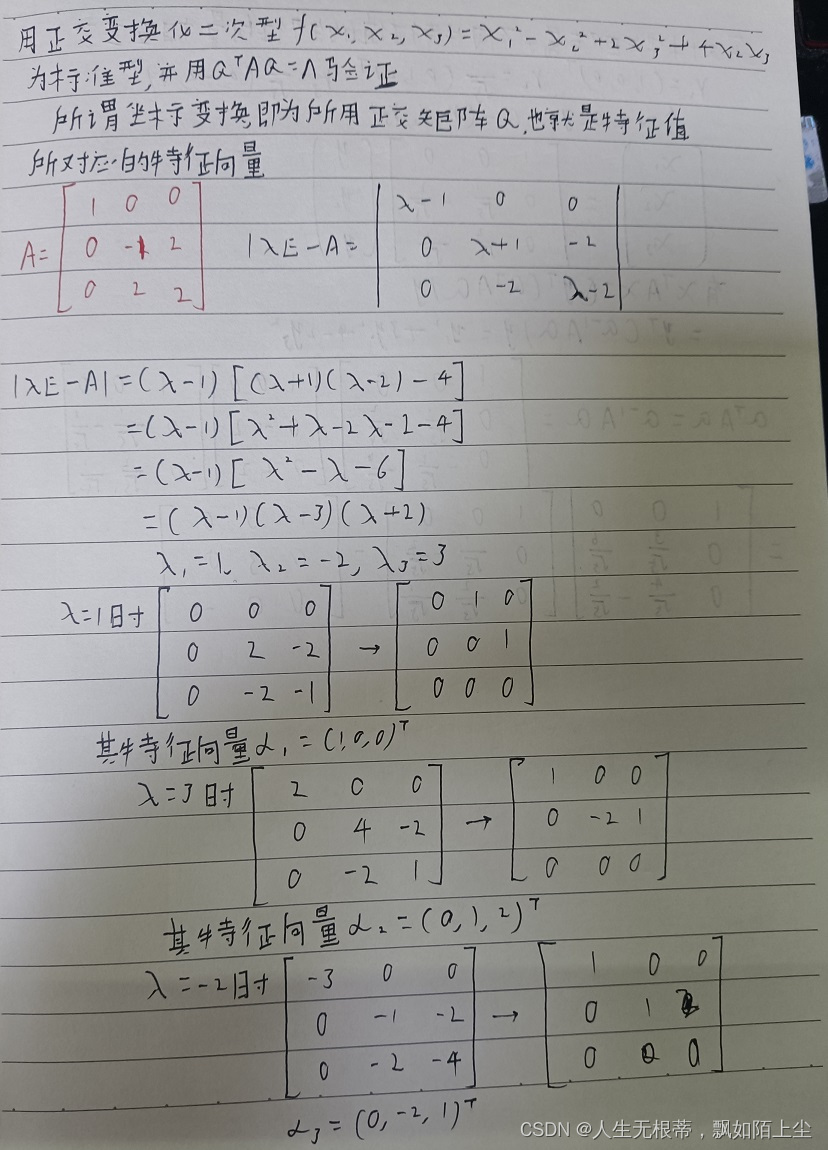 用正交变换化二次型 f(x₁, x₂, x₃) = x₁² - x₂² + 2x₃² + 4x₂x₃
为标准型,并用 QᵀAQ = Λ 验证
所谓坐标变换即为所用正交矩阵Q,也就是特征值
所对应的特征向量
A = [1 0 0; 0 -1 2; 0 2 2] |λE-A = |λ-1 0 0; 0 λ+1 -2; 0 -2 λ-2|
|λE-A| = (λ-1)[(λ+1)(λ-2)-4]
= (λ-1)[λ²+λ-2λ-2-4]
= (λ-1)[λ²-λ-6]
= (λ-1)(λ-3)(λ+2)
λ₁=1, λ₂=-2, λ₃=3
λ=1时 [0 0 0; 0 2 -2; 0 -2 -1] → [0 1 0; 0 0 1; 0 0 0]
其特征向量α₁=(1,0,0)ᵀ
λ=3时 [2 0 0; 0 4 -2; 0 -2 1] → [1 0 0; 0 -2 1; 0 0 0]
其特征向量α₂=(0,1,2)ᵀ
λ=-2时 [-3 0 0; 0 -1 -2; 0 -2 -4] → [1 0 0; 0 1 2; 0 0 0]
α₃=(0,-2,1)ᵀ
CSDN @人生无根蒂，飘如陌上尘